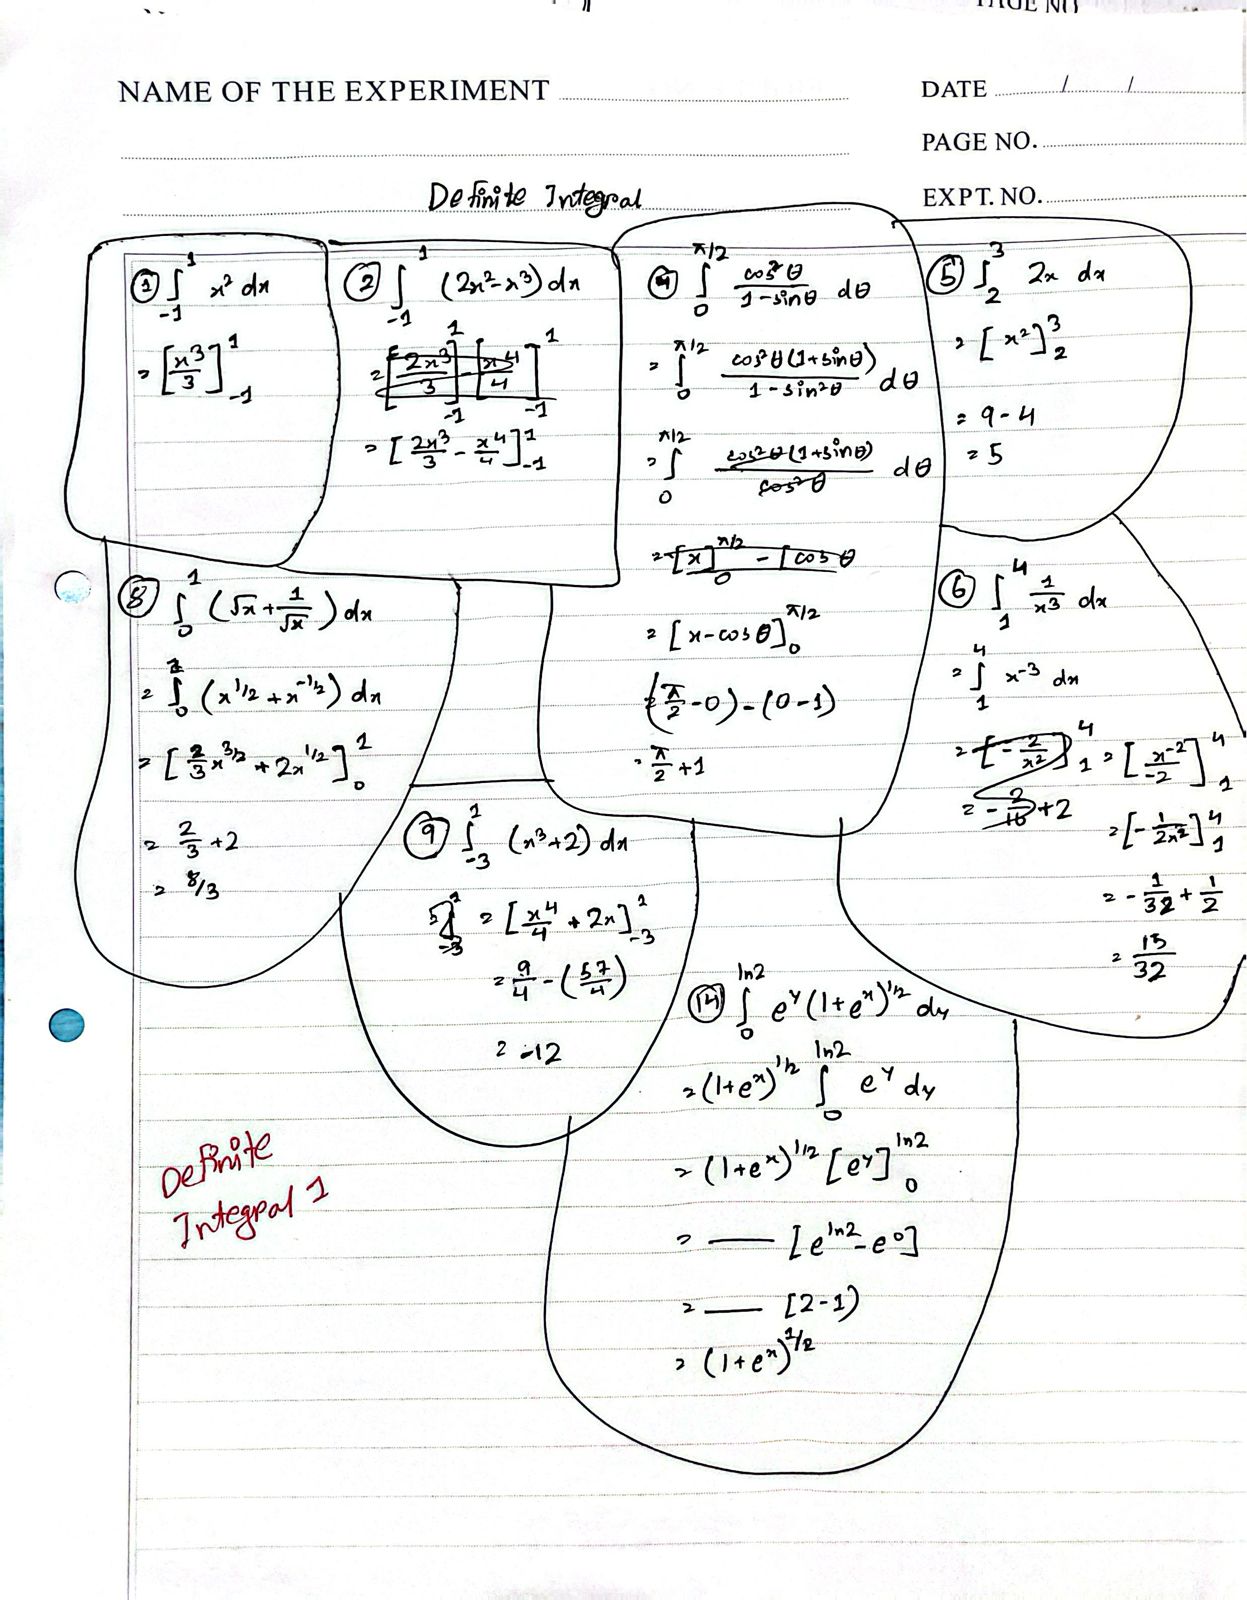 PAGE NO
NAME OF THE EXPERIMENT
DATE / /
PAGE NO.
EXPT. NO.
Definite Integral
① ∫_{-1}^{1} x² dx
= [x³/3]_{-1}^{1}
② ∫_{-1}^{1} (2x²-x³) dx
= [2x³/3]_{-1}^{1} - [x⁴/4]_{-1}^{1}
= [2x³/3 - x⁴/4]_{-1}^{1}
④ ∫_{0}^{π/2} cos²θ/(1-sinθ) dθ
= ∫_{0}^{π/2} cos²θ(1+sinθ)/(1-sin²θ) dθ
= ∫_{0}^{π/2} cos²θ(1+sinθ)/cos²θ dθ
= [x]_{0}^{π/2} - [cosθ
= [x-cosθ]_{0}^{π/2}
= (π/2-0)-(0-1)
= π/2+1
⑤ ∫_{2}^{3} 2x dx
= [x²]_{2}^{3}
= 9-4
= 5
⑥ ∫_{1}^{4} 1/x³ dx
= ∫_{1}^{4} x⁻³ dx
= [-2/x²]_{1}^{4} = [x⁻²/-2]_{1}^{4}
= -2/16+2
= [-1/2x²]_{1}^{4}
= -1/32+1/2
= 15/32
⑧ ∫_{0}^{1} (√x+1/√x) dx
= ∫_{0}^{1} (x^{1/2}+x^{-1/2}) dx
= [2/3 x^{3/2}+2x^{1/2}]_{0}^{1}
= 2/3+2
= 8/3
⑨ ∫_{-3}^{1} (x³+2) dx
= [x⁴/4+2x]_{-3}^{1}
= 9/4-(57/4)
= -12
⑭ ∫_{0}^{ln2} e^y(1+e^x)^{1/2} dy
= (1+e^x)^{1/2} ∫_{0}^{ln2} e^y dy
= (1+e^x)^{1/2} [e^y]_{0}^{ln2}
= —— [e^{ln2}-e⁰]
= —— [2-1)
= (1+e^x)^{1/2}
Definite
Integral 1